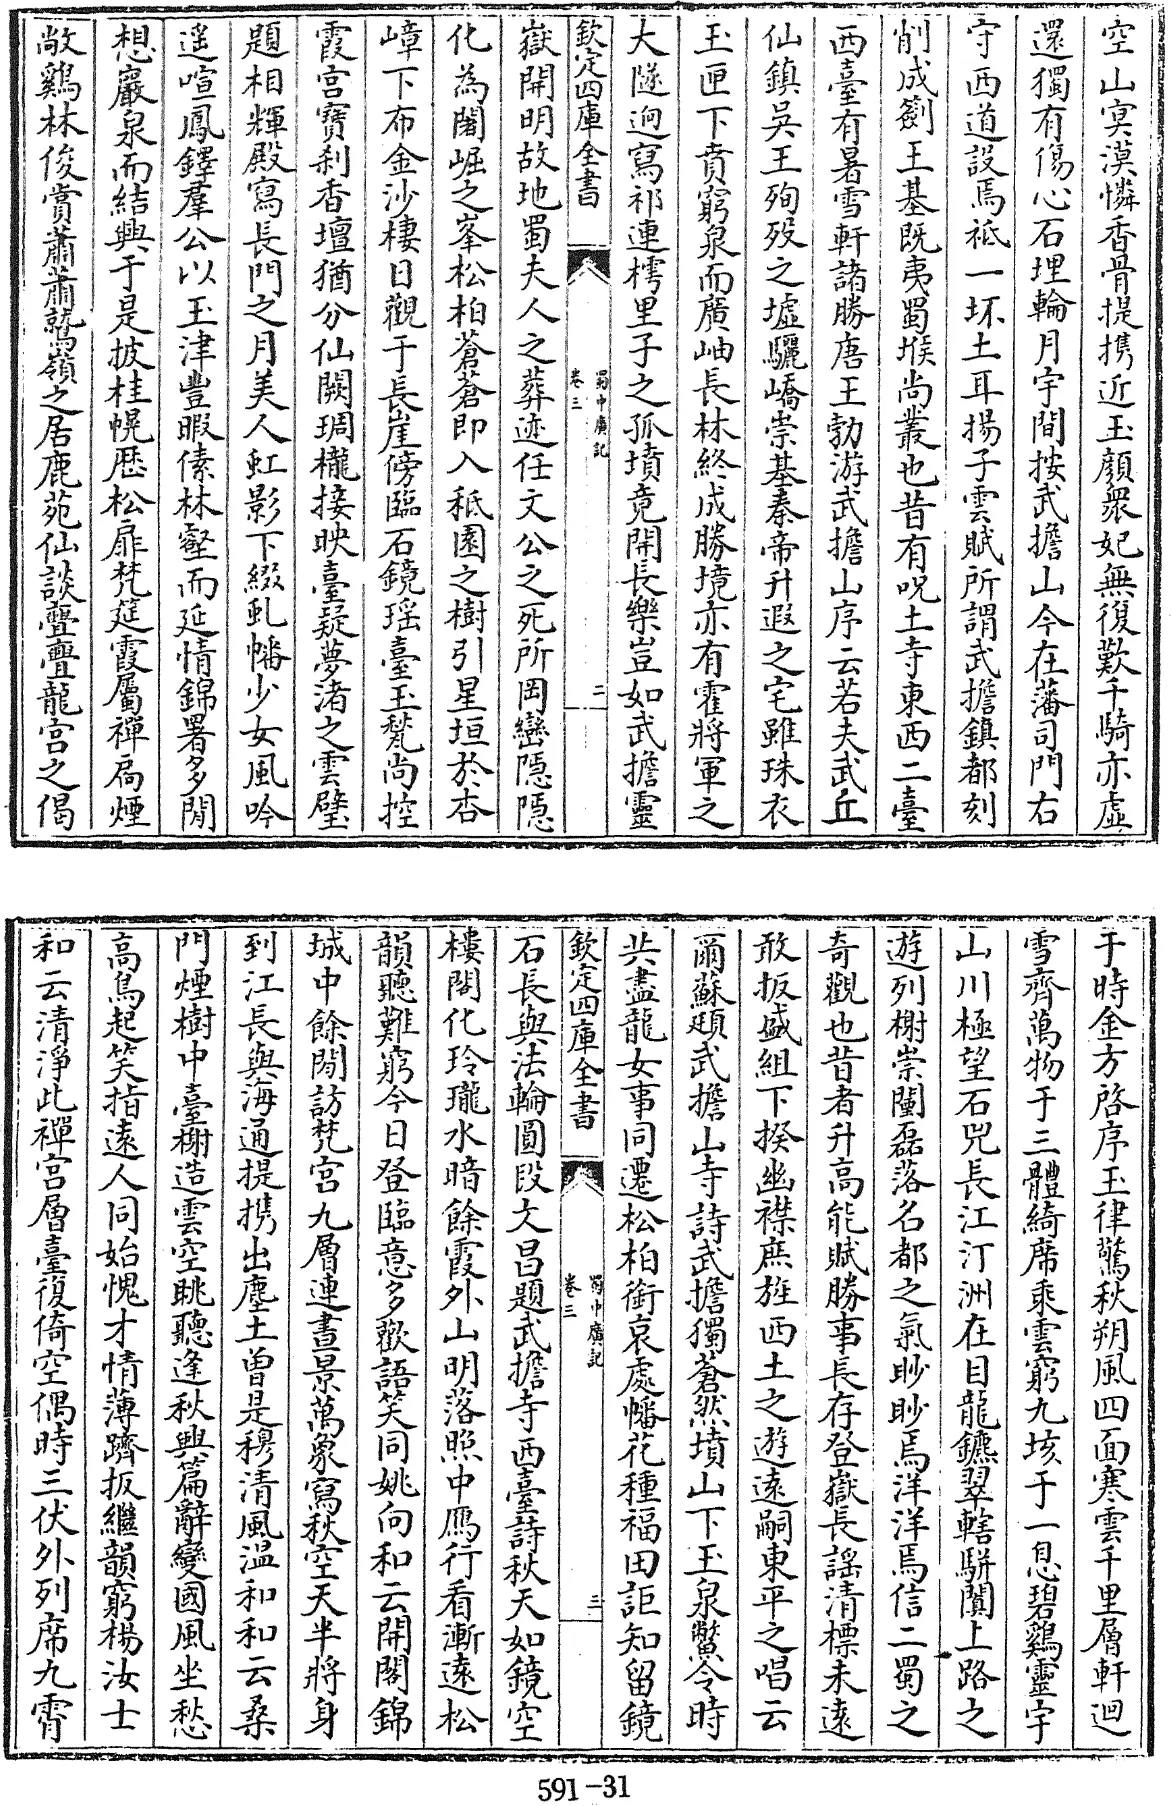 空山㝠漠憐香骨提携近玉顔衆妃無復歎千騎亦虚
還獨有傷心石埋輪月宇間按武擔山今在藩司門右
守西道設焉祗一坏土耳揚子雲賦所謂武擔鎮都刻
削成劉王基既夷蜀堠尚叢也昔有呪土寺東西二臺
西臺有暑雪軒諸勝唐王勃游武擔山序云若夫武丘
仙鎮吳王殉歿之墟驪嶠崇基秦帝升遐之宅雖珠衣
玉匣下賁窮泉而廣岫長林終成勝境亦有霍將軍之
大隧迥寫祁連樗里子之孤墳竟開長樂豈如武擔靈
欽定四庫全書
蜀中廣記
卷三
二
嶽開明故地蜀夫人之葬迹任文公之死所岡巒隱隱
化為闍崛之峯松柏蒼蒼即入秪園之樹引星垣於杏
嶂下布金沙棲日觀于長崖傍臨石鏡瑶臺玉甃尚控
霞宫寳刹香壇猶分仙闕琱櫳接映臺疑夢渚之雲璧
題相輝殿寫長門之月美人虹影下綴虬幡少女風吟
遥喧鳳鐸羣公以玉津豐暇傃林壑而延情錦署多閒
想巖泉而結興于是披桂幌歴松扉梵筵霞屬禪扃煙
敞鷄林俊賞蕭蕭鷲嶺之居鹿苑仙談亹亹龍宫之偈
于時金方啓序玉律驚秋朔風四面寒雲千里層軒迴
雪齊萬物于三體綺席乘雲窮九垓于一息碧鷄靈宇
山川極望石兕長江汀洲在目龍鑣翠轄駢闐上路之
遊列榭崇闉磊落名都之氣眇眇焉洋洋焉信二蜀之
奇觀也昔者升高能賦勝事長存登嶽長謡清標未逺
敢扳盛組下揆幽襟庶旌西土之遊逺嗣東平之唱云
爾蘇頲武擔山寺詩武擔獨蒼然墳山下玉泉鱉令時
共盡龍女事同遷松柏銜哀處幡花種福田詎知留鏡
欽定四庫全書
蜀中廣記
卷三
三
石長與法輪圓段文昌題武擔寺西臺詩秋天如鏡空
樓閣化玲瓏水暗餘霞外山明落照中鴈行看漸逺松
韻聽難窮今日登臨意多歡語笑同姚向和云開閣錦
城中餘閒訪梵宫九層連晝景萬象寫秋空天半將身
到江長與海通提携出塵土曽是穆清風温和和云桑
門煙樹中臺榭造雲空眺聽逢秋興篇辭變國風坐愁
高鳥起笑指遠人同始愧才情薄躋扳繼韻窮楊汝士
和云清淨此禪宫層臺復倚空偶時三伏外列席九霄
591-31